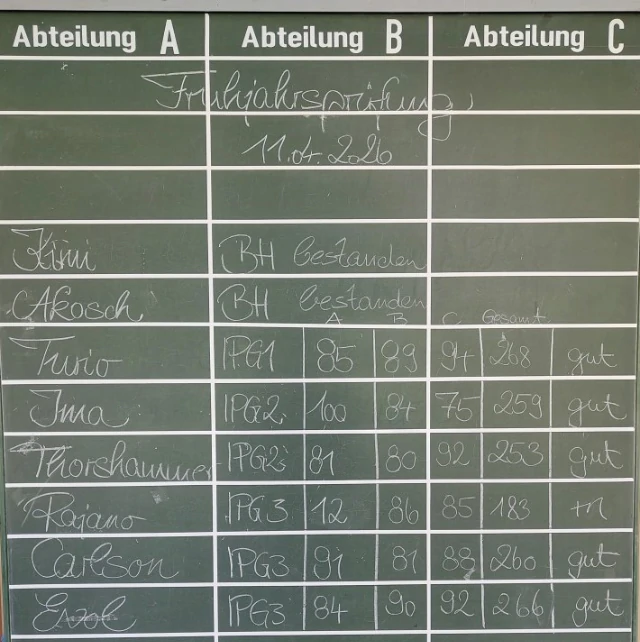 Abteilung A Abteilung B Abteilung C
Frühjahrsprüfung
11.04.2026
Kimi BH bestanden
Akosch BH bestanden
A B C Gesamt
Turio IPG1 85 89 94 268 gut
Ima IPG2 100 84 75 259 gut
Thorshammer IPG2 81 80 92 253 gut
Rajano IPG3 12 86 85 183
Carlson IPG3 91 81 88 260 gut
IPG3 84 90 92 266 gut